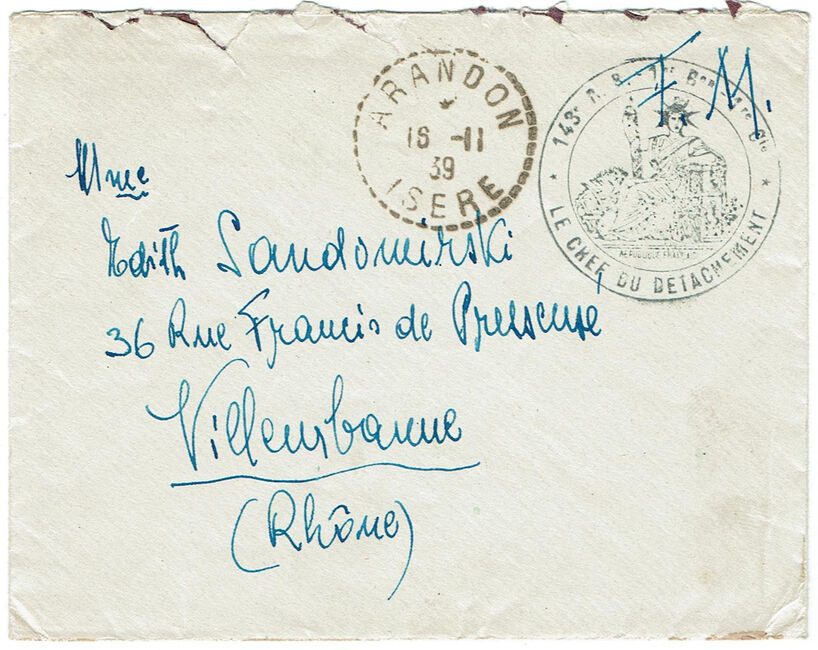 F.M.
ARANDON
16 -11
39
ISERE
143e R. 1er Bon 4re Cie
LE CHEF DU DETACHEMENT
Mme
Edith Sandomirski
36 Rue Francis de Pressensé
Villeurbanne
(Rhône)